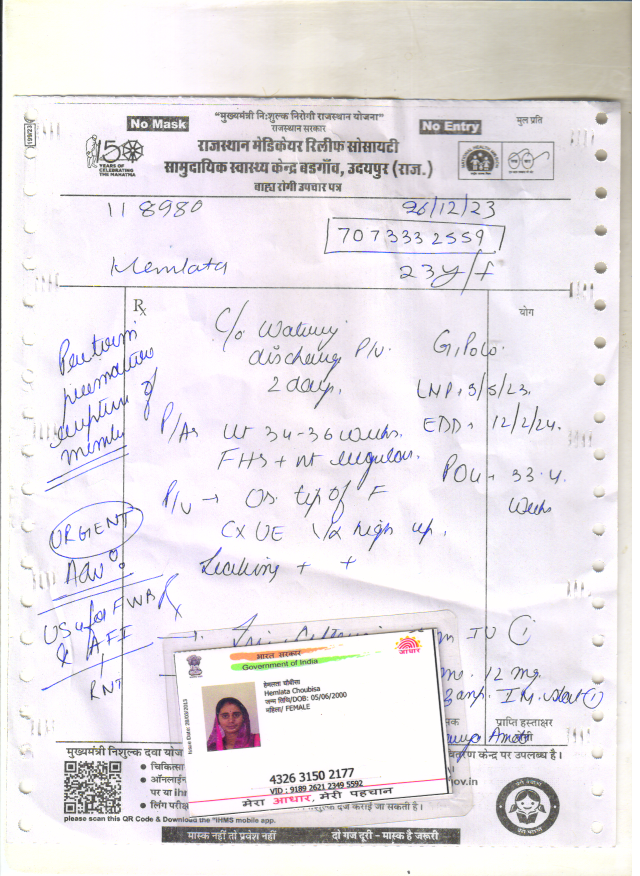 199/23
No Mask
"मुख्यमंत्री निःशुल्क निरोगी राजस्थान योजना"
राजस्थान सरकार
No Entry
मुल प्रति
150
YEARS OF
CELEBRATING
THE MAHATMA
राजस्थान मेडिकेयर रिलीफ सोसायटी
सामुदायिक स्वास्थ्य केन्द्र बडगाँव, उदयपुर (राज.)
बाह्य रोगी उपचार पत्र
118980
26/12/23
7073332559
Hemlata
23y/f
Rx
योग
C/o Watery
discharge P/V.
2 days.
LMP 5/5/23.
EDD 12/2/24.
P/A Ut 34-36 weeks.
FHS + nt regular.
POG 33.4
weeks
P/V → Os tip of F
CX UE high up.
Leaking + +
Preterm
premature
rupture of
URGENT
Adv:
USG for FWB
& AFI
RNT
Rx
IV 1
12 mg.
I.M. stat 1
प्राप्ति हस्ताक्षर
रोगी
भारत सरकार
Government of India
Issue Date: 26/09/2013
हेमलता चौबीसा
Hemlata Choubisa
जन्म तिथि/DOB: 05/06/2000
महिला/ FEMALE
आधार
4326 3150 2177
VID : 9189 2621 2349 5592
मेरा आधार, मेरी पहचान
मुख्यमंत्री निशुल्क दवा
वितरण केन्द्र पर उपलब्ध है।
● चिकित्सा
● ऑनलाईन
पर या
gov.in
● लिंग परीक्षण
दर्ज कराई जा सकती है।
please scan this QR Code & Download the "IHMS mobile app.
मास्क नहीं तो प्रवेश नहीं
दो गज दूरी - मास्क है जरूरी